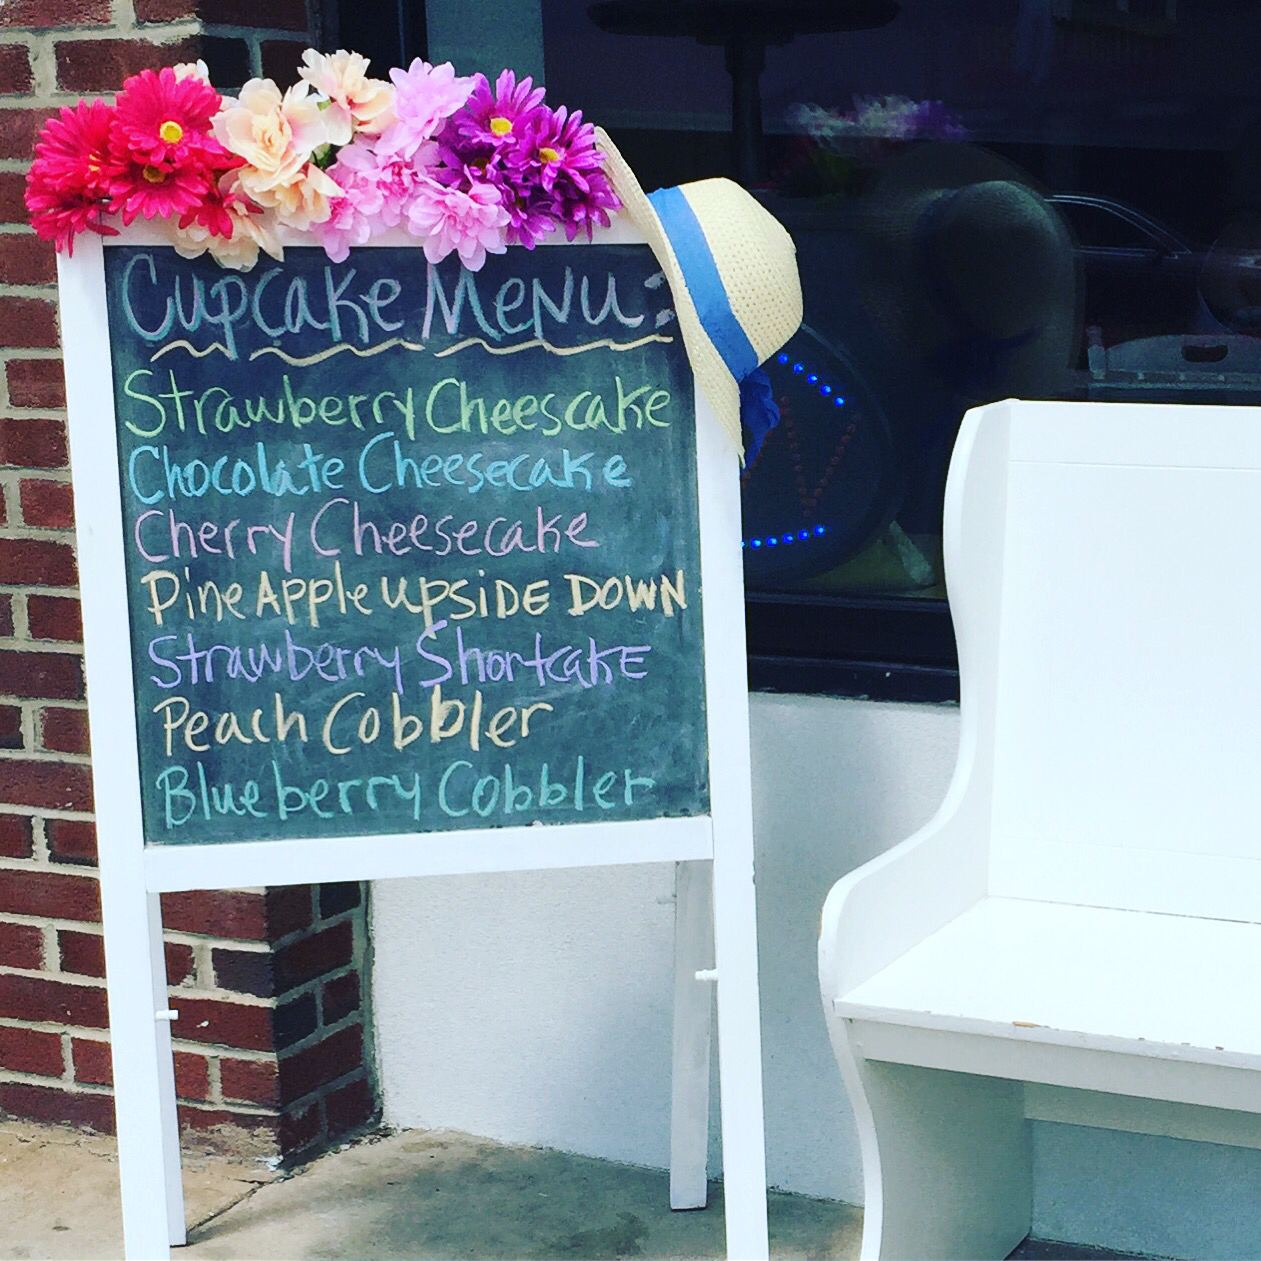 Cupcake Menu:
Strawberry Cheesecake
Chocolate Cheesecake
Cherry Cheesecake
PineApple upsiDE DOWN
Strawberry ShortcakE
Peach Cobbler
Blueberry Cobbler